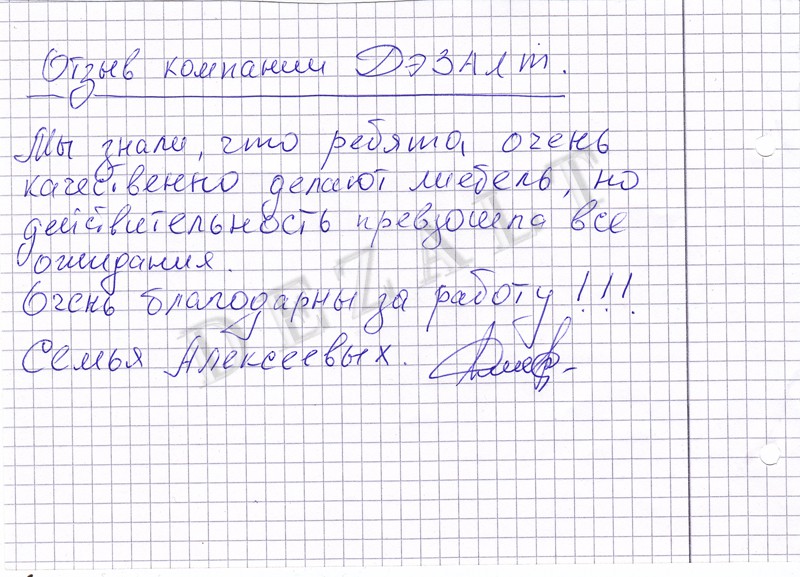 Отзыв компании ДЭЗАЛТ.
Мы знали, что ребята очень
качественно делают мебель, но
действительность превзошла все
ожидания.
Очень благодарны за работу!!!
Семья Алексеевых.
DEZALT